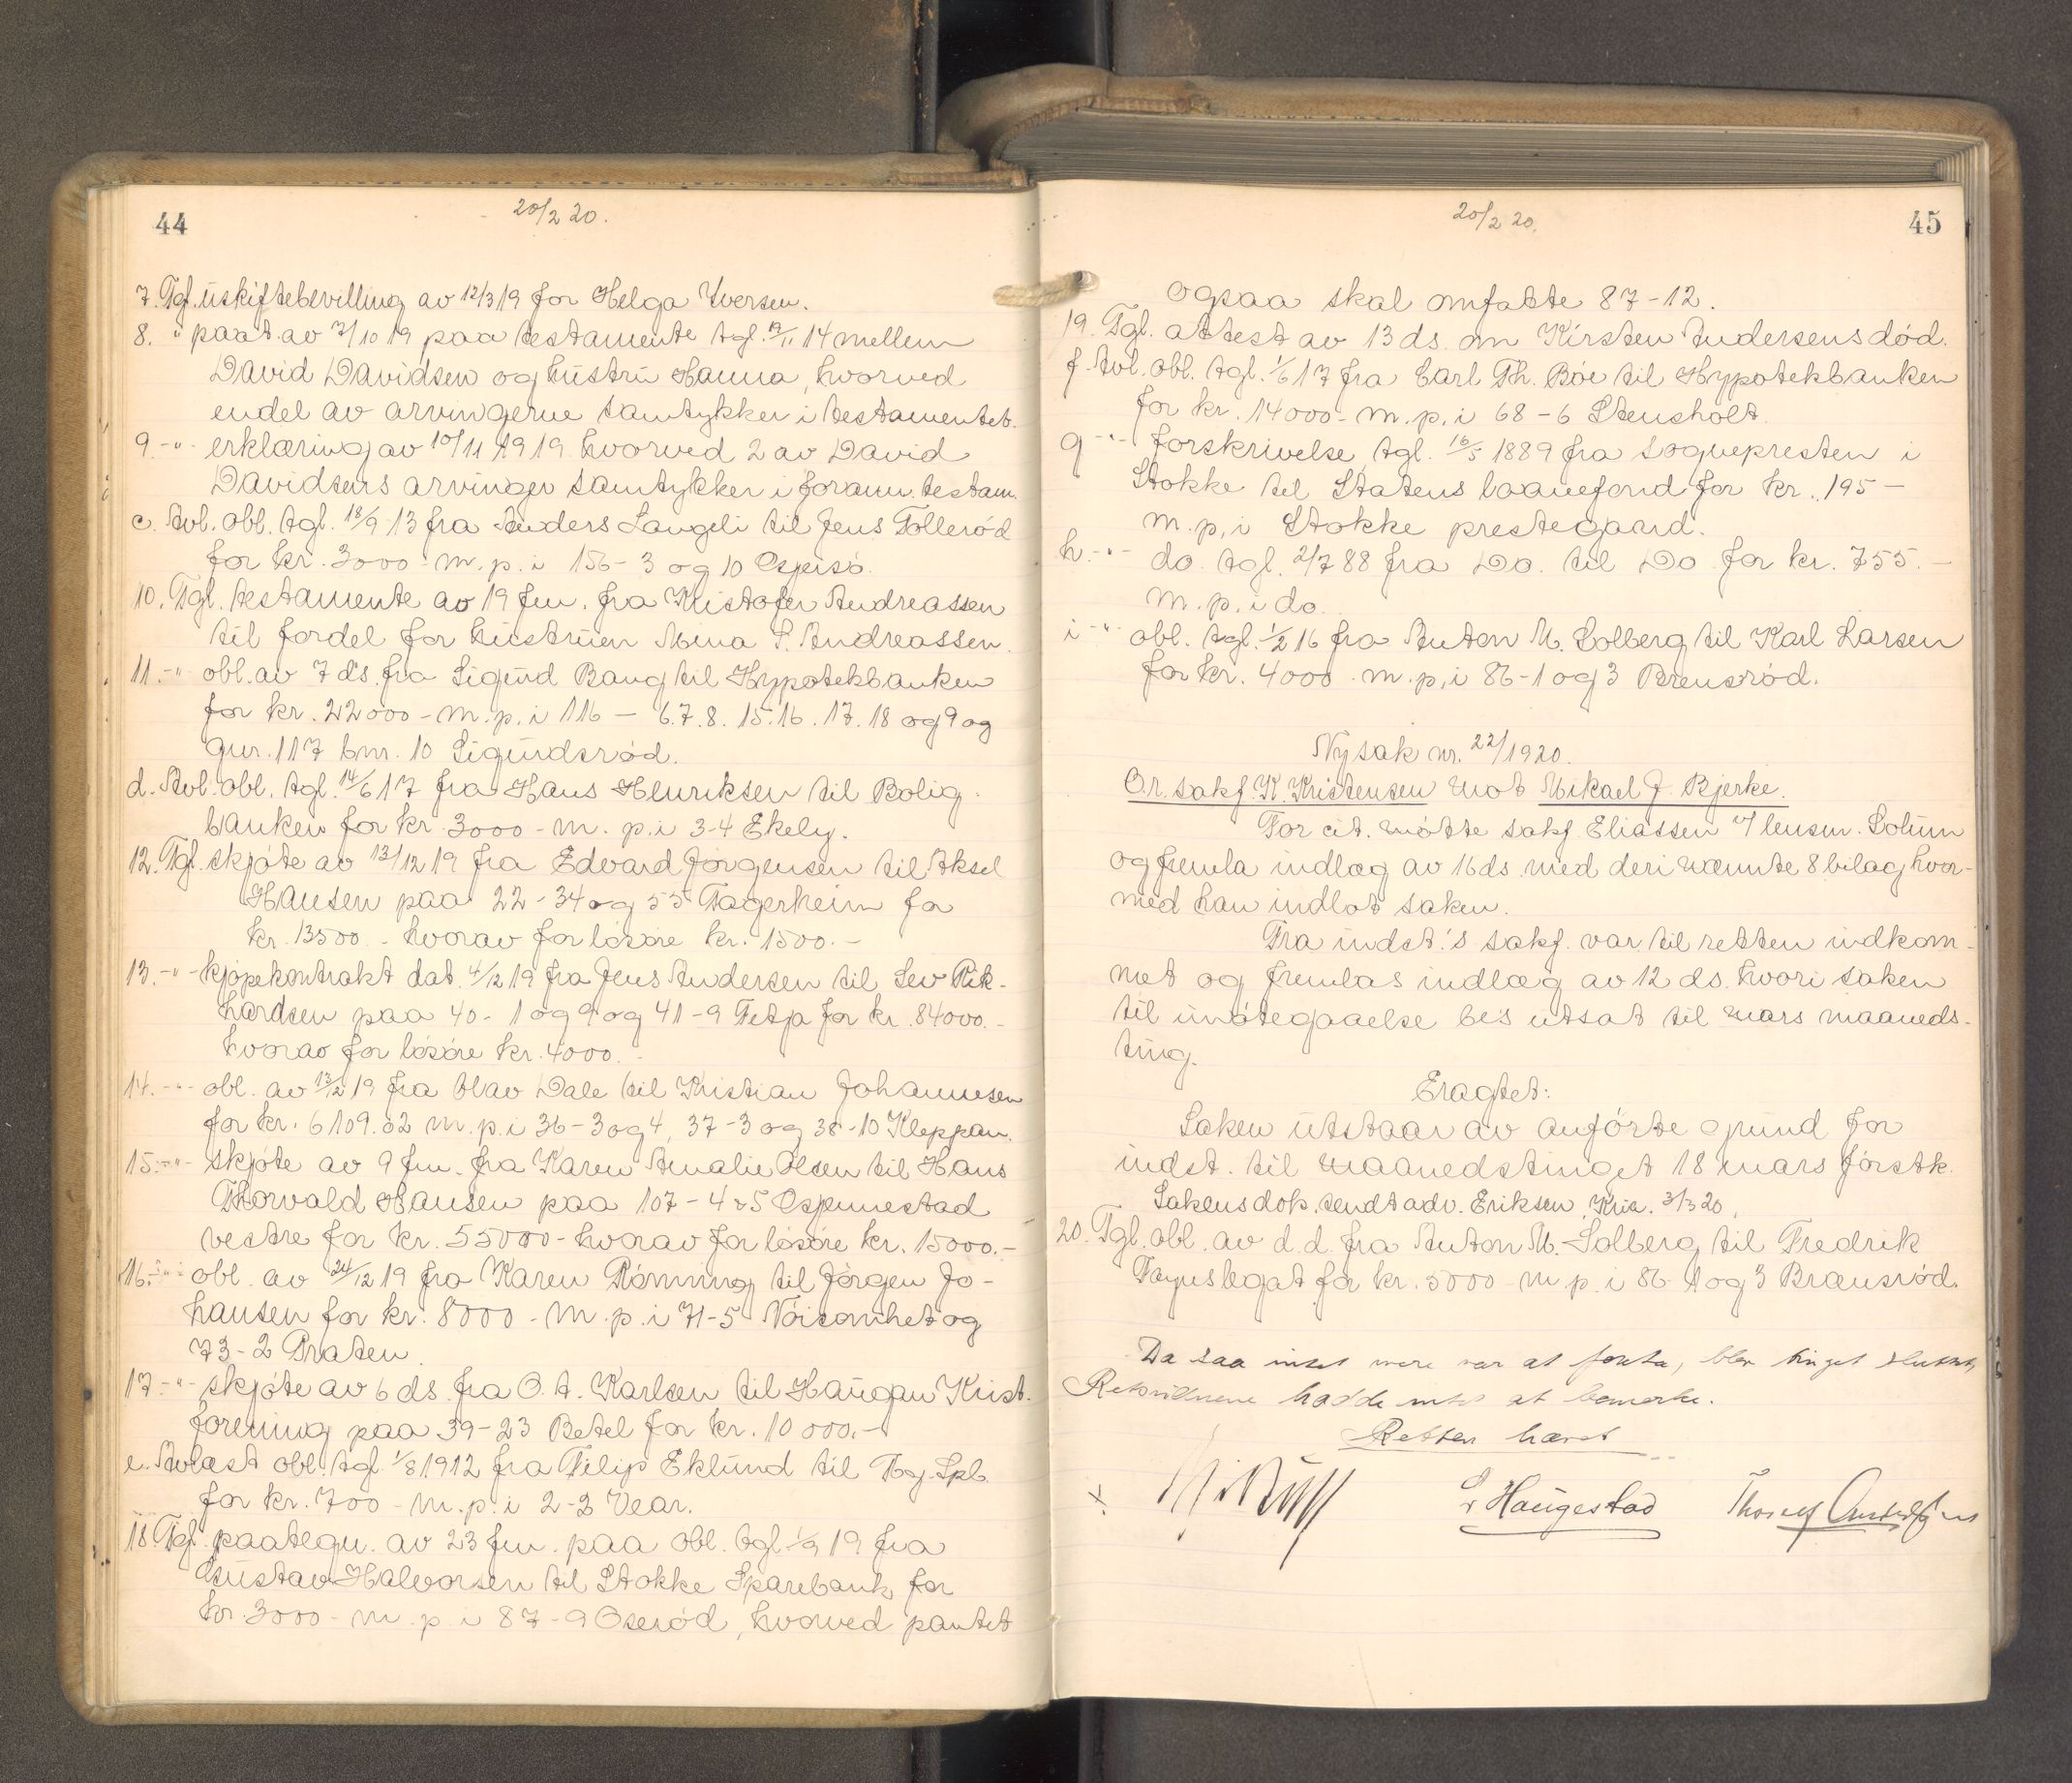 44
20/2 20.
7. Tgl. uskiftebevilling av 12/3 19 for Helga Iversen.
8. " paat. av 7/10 19 paa testamente tgl. 19/11 14 mellem
David Davidsen og hustru Hanna, hvorved
endel av arvingerne samtykker i testamentet.
9 -"- erklæring av 10/11 1919 hvorved 2 av David
Davidsens arvinger samtykker i forann. testam.
c. Avl. obl. tgl. 18/9 13 fra Anders Langeli til Jens Tollerød
for kr. 3000 - m. p. i 156 - 3 og 10 Espeisø.
10. Tgl. testamente av 19 f.m. fra Kristofer Andreassen
til fordel for hustruen Mina S. Andreassen.
11. -"- obl. av 7 ds. fra Sigurd Bang til Hypotekbanken
for kr. 22000 - m. p. i 116 - 6. 7. 8. 15. 16. 17. 18 og 9 og
gnr. 117 bnr. 10 Sigurdsrød.
d. Avl. obl. tgl. 14/6 17 fra Hans Henriksen til Bolig
banken for kr. 3000 - m. p. i 3-4 Ekely.
12. Tgl. skjøte av 13/12 19 fra Edvard Jørgensen til Aksel
Hansen paa 22 - 34 og 55 Fagerheim for
kr. 13500 - hvorav for løsøre kr. 1500. -
13. -"- kjøpekontrakt dat. 4/12 19 fra Jens Andersen til Lev Rik-
hardsen paa 40 - 1 og 9 og 41 - 9 Fetja for kr. 84000. -
hvorav for løsøre kr. 4000. -
14. -"- obl. av 13/12 19 fra Olav Dale til Kristian Johannesen
for kr. 6109.62 m. p. i 36 - 3 og 4, 37 - 3 og 38 - 10 Kleppan.
15. -"- skjøte av 9 f.m. fra Karen Amalie Olsen til Hans
Thorvald Hansen paa 107 - 4 & 5 Espennestad
vestre for kr. 55000 - hvorav for løsøre kr. 15000. -
16. -"- obl. av 24/12 19 fra Karen Rømming til Jørgen Jo-
hansen for kr. 8000 - m. p. i 71 - 5 Nøisomhet og
73 - 2 Braten.
17 -"- skjøte av 6 ds. fra O. A. Karlsen til Haugan Krist.
forening paa 39 - 23 Betel for kr. 10 000. -
e. Avlæst obl. tgl. 1/8 1912 fra Filip Eklund til Tbg. Spb.
for kr. 700 - m. p. i 2 - 3 Vear.
18 Tgl. paategn. av 23 f.m. paa obl. tgl. 1/9 19 fra
Gustav Halvorsen til Stokke Sparebank for
kr. 3000 - m. p. i 87 - 9 Oserød, hvorved pantet
20/2 20.
45
ogsaa skal omfatte 87 - 12.
19. Tgl. attest av 13 ds. om Kirsten Andersens død.
f. Avl. obl. tgl. 1/6 17 fra Carl Th. Bøe til Hypotekbanken
for kr. 14000 - m. p. i 68 - 6 Stensholt.
g -"- forskrivelse tgl. 16/5 1889 fra sognepresten i
Stokke til Statens laanefond for kr. 195 -
m. p. i Stokke prestegaard.
h. -"- do. tgl. 2/7 88 fra Do. til Do for kr. 755. -
m. p. i do.
i -"- obl. tgl. 1/2 16 fra Anton M. Solberg til Karl Larsen
for kr. 4000 . m. p. i 86 - 1 og 3 Brensrød.
Ny sak nr. 22/1920.
O.r. sakf. K. Kristensen mot Mikael J. Bjerke.
For cit. møtte sakf. Eliassen v/ lensm. Solum
og fremla indlæg av 16 ds. med deri nævnte 8 bilag hvor-
med han indlot saken.
Fra indst.'s sakf. var til retten indkom-
met og fremlas indlæg av 12 ds. hvori saken
til imøtegaaelse bes utsat til mars maaneds-
ting.
Eragtet:
Saken utstaar av anførte grund for
indst. til maanedstinget 18 mars førstk.
Sakens dok. sendt adv. Eriksen, Kria. 3/3 20.
20. Tgl. obl. av d.d. fra Anton M. Solberg til Fredrik
Fayes legat for kr. 5000 - m. p. i 86 - 1 og 3 Bransrød.
Da saa intet mere var at foreta, blev tinget sluttet,
Retsvidnene hadde intet at bemerke.
Retten hævet
L Haugestad